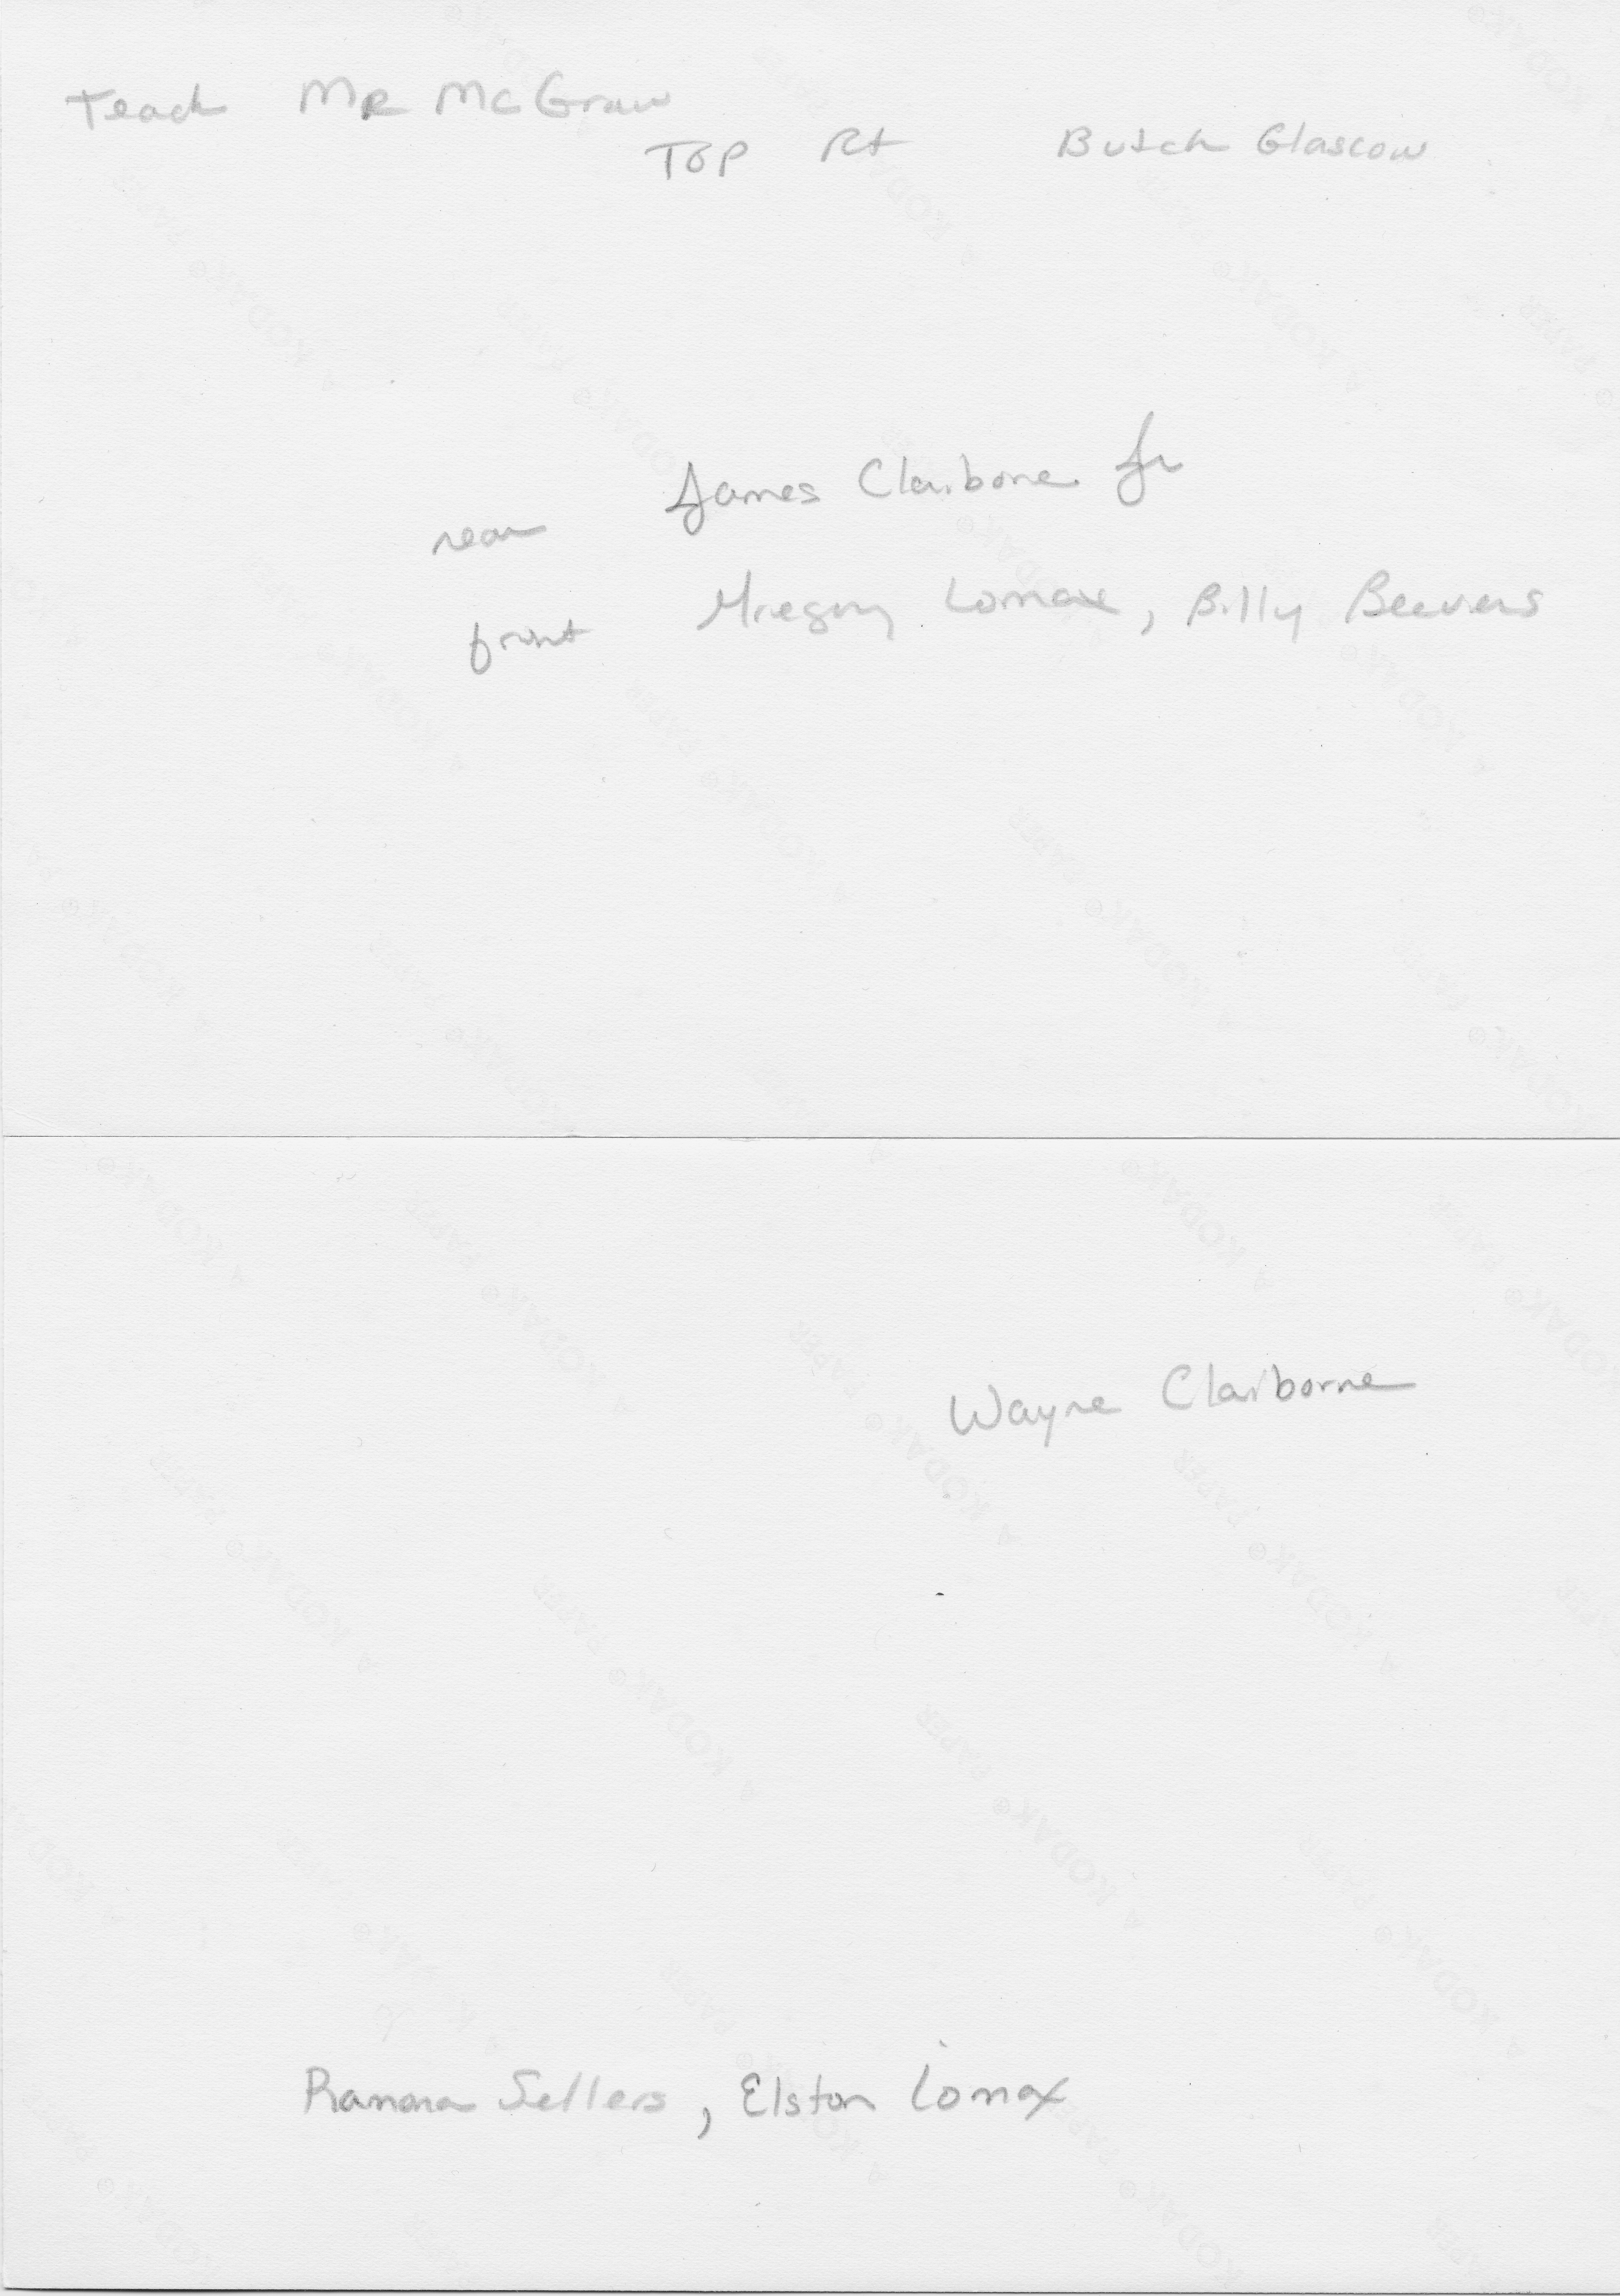 Teach Mr McGraw
TOP Rt Butch Glascow
James Claiborne Jr
rear
front Gregory Lomax, Billy Beevers
Wayne Claiborne
Ramona Sellers, Elston Lomax